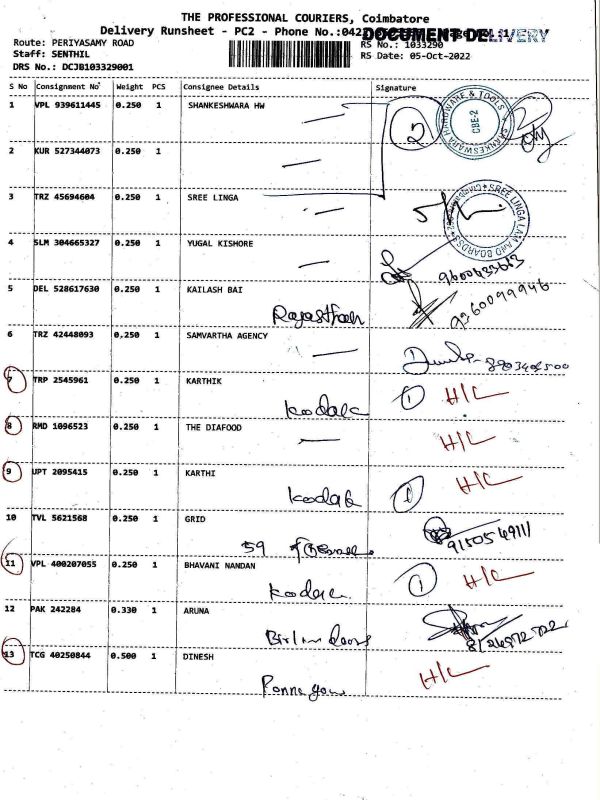 THE PROFESSIONAL COURIERS, Coimbatore
Delivery Runsheet - PC2 - Phone No.:042
DOCUMENT DELIVERY
Route: PERIYASAMY ROAD
RS No.: 1033290
Staff: SENTHIL
RS Date: 05-Oct-2022
DRS No.: DCJB103329001
S No Consignment No Weight PCS Consignee Details Signature
1 VPL 939611445 0.250 1 SHANKESHWARA HW 2
CBE-2
2 KUR 527344073 0.250 1
3 TRZ 45694604 0.250 1 SREE LINGA
4 SLM 304665327 0.250 1 YUGAL KISHORE
5 DEL 528617630 0.250 1 KAILASH BAI
Rajasthan
6 TRZ 42448093 0.250 1 SAMVARTHA AGENCY
7 TRP 2545961 0.250 1 KARTHIK 1 H/C
kodak
8 RMD 1096523 0.250 1 THE DIAFOOD H/C
9 UPT 2095415 0.250 1 KARTHI 1 H/C
kodak
10 TVL 5621568 0.250 1 GRID
59
11 VPL 400207055 0.250 1 BHAVANI NANDAN 1 H/C
kodak
12 PAK 242284 0.330 1 ARUNA
13 TCG 40250844 0.500 1 DINESH H/C